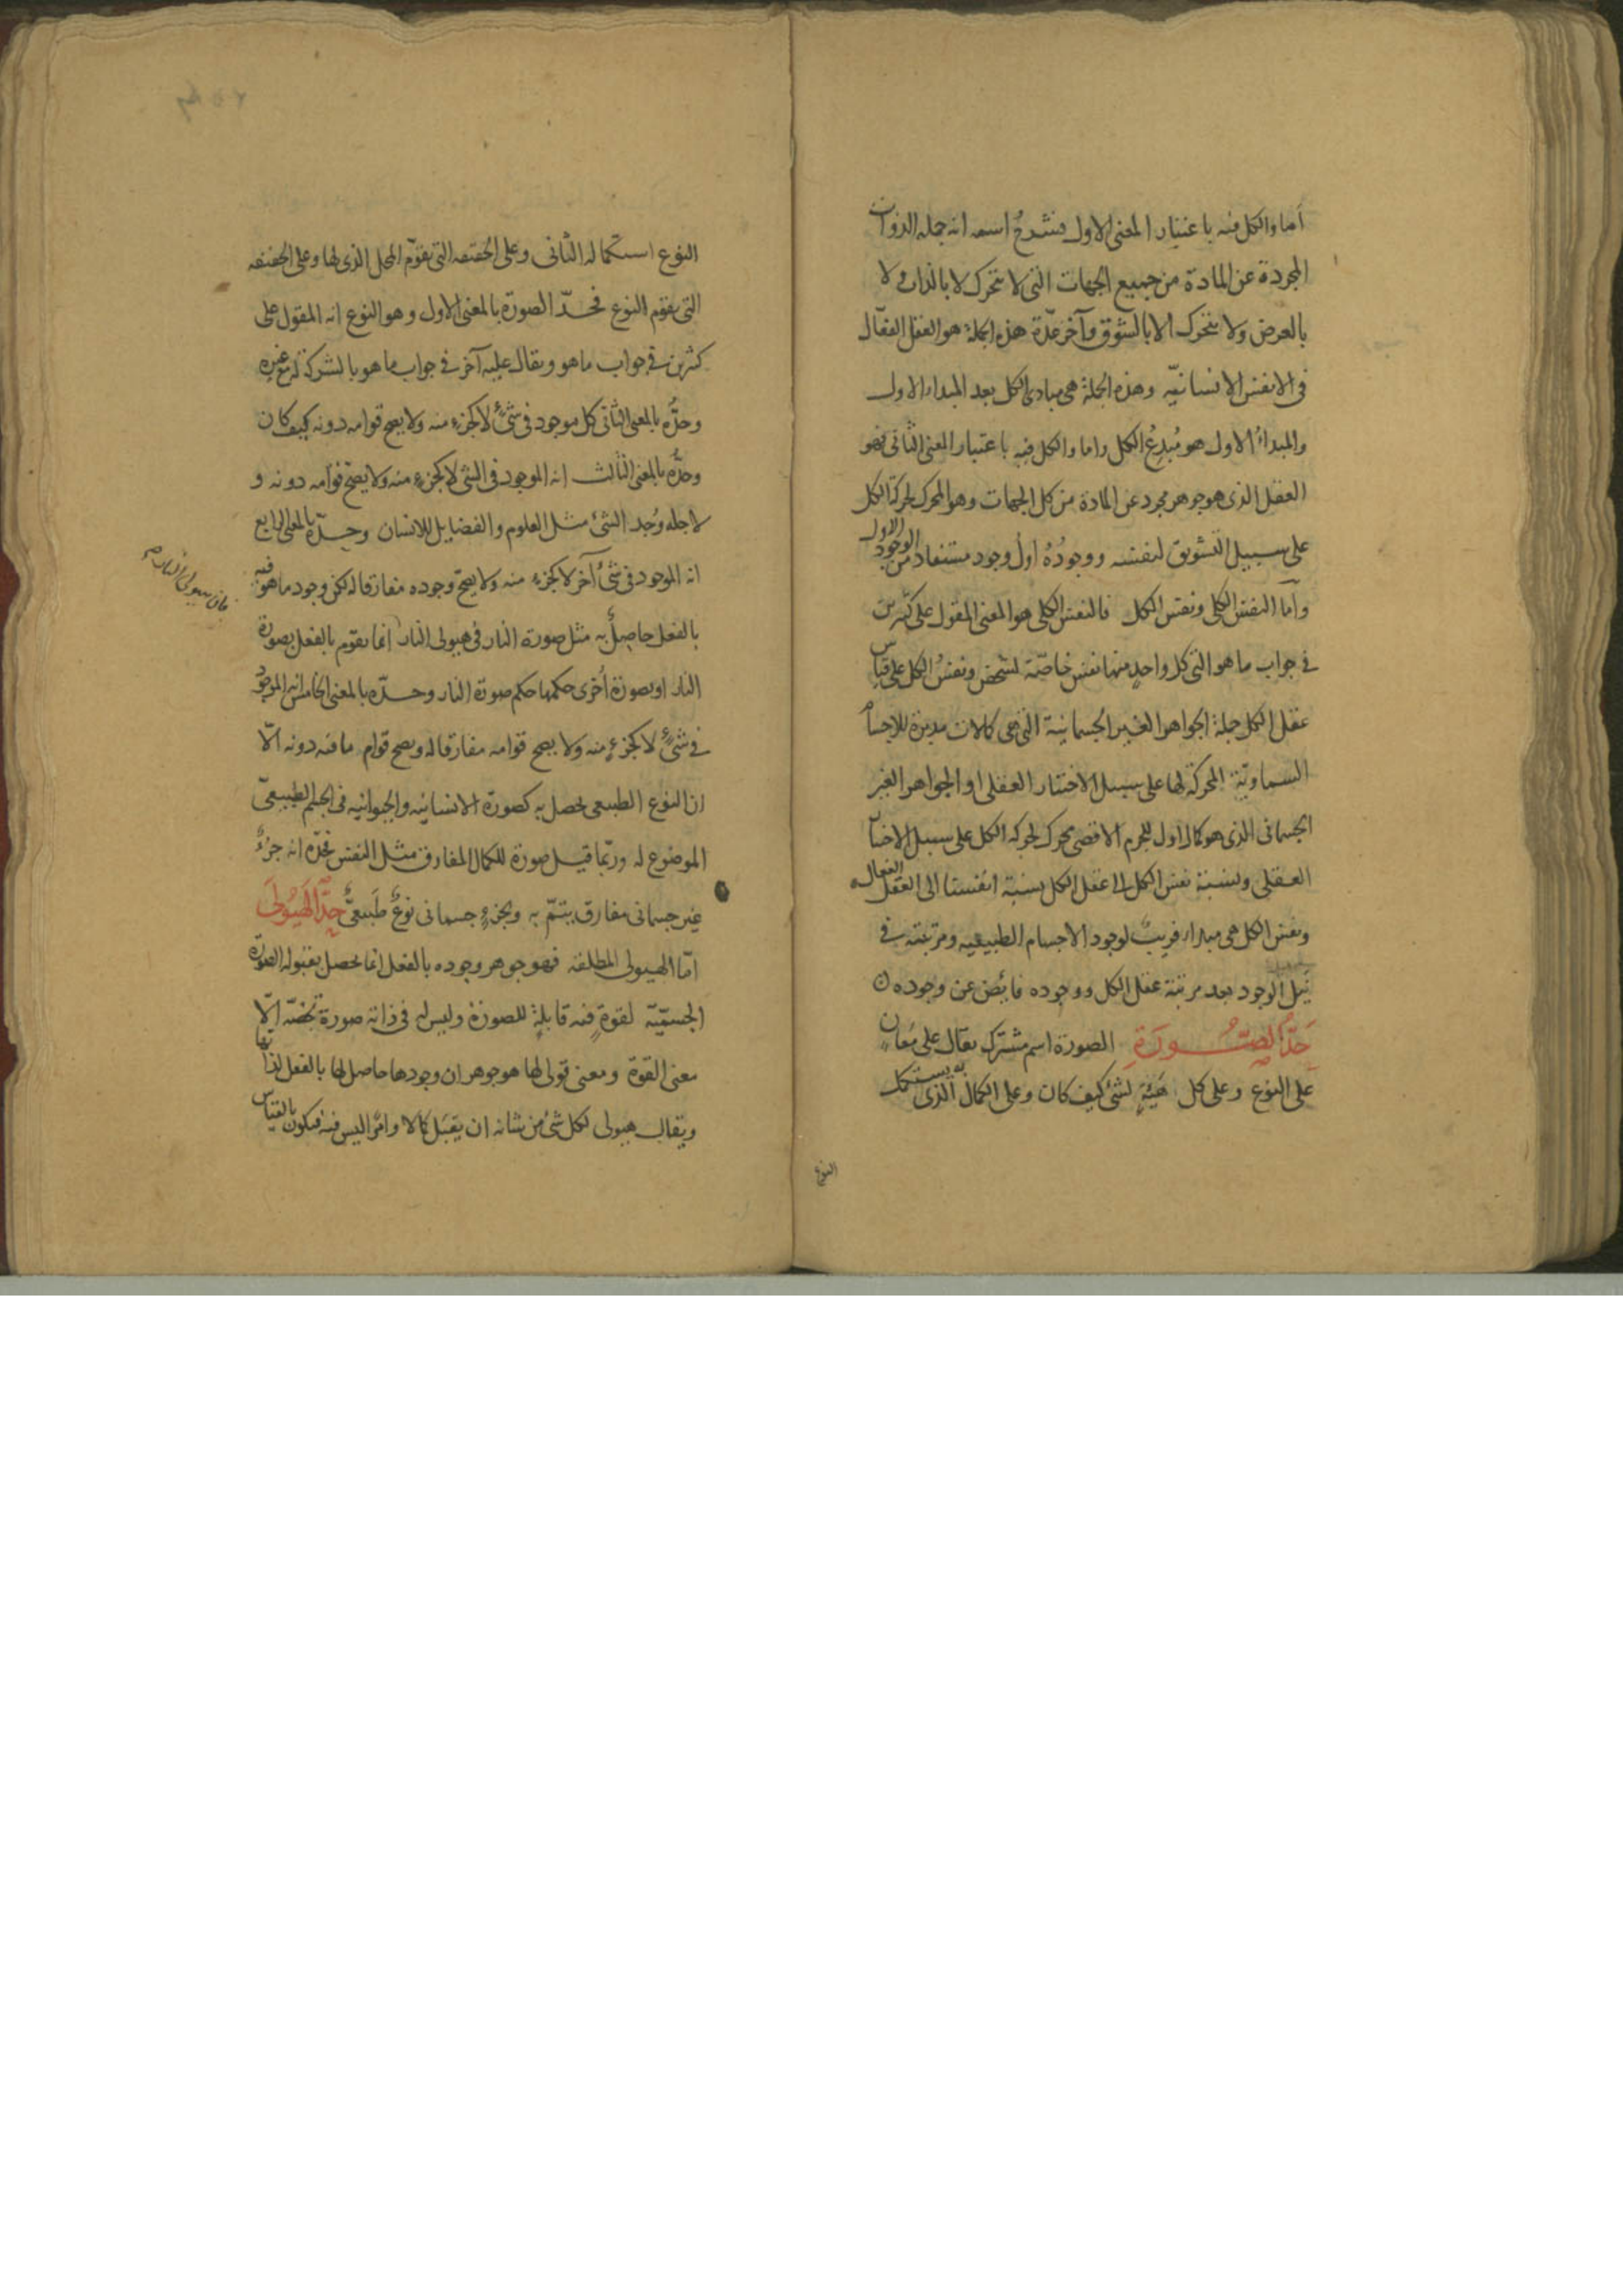 اما والكل فيه باعتبار المعنى الاول فشرح اسمه انه جملة الذوات
المجردة عن المادة من جميع الجهات التى لا تتحرك لا بالذات ولا
بالعرض ولا تتحرك الا بالشوق وآخر عدّة هذه الجملة هو العقل الفعّال
فى الانفس الانسانيّة وهذه الجملة هى مبادى الكل بعد المبداء الاول
والمبداءُ الاول هو مُبدِعُ الكل واما والكل فيه باعتبار المعنى الثانى فهو
العقل الذى هو جوهر مجرد عن المادة من كل الجهات وهو المحرك لحركة الكل
على سبيل التشويق لنفسه ووجودُهُ اولُ وجود مستفاد من الوجود الاول
وآما النفس الكلى ونفس الكل فالنفس الكلى هو المعنى المقول على كثيرين
فى جواب ما هو التى كل واحدٍ منها نفس خاصّة لشخص ونفسُ الكل على قياس
عقل الكل جملة الجواهر الغير الجسمانية التى هى كمالات مدبرة للاجسام
السماويّة المحركة لها على سبيل الاختيار العقلى او الجواهر الغير
الجسمانى الذى هو كمال اول للجرم الاقصى محرك لحركة الكل على سبيل الاختيار
العقلى ونسبة نفس الكل الى عقل الكل نسبة انفسنا الى العقل الفعال
ونفس الكل هى مبداء قريبٌ لوجود الاجسام الطبيعيه ومرتبته فى
نَيل الوجود بعد مرتبة عقل الكل ووجوده فائض عن وجوده
حَدُّ الصُّورَةِ الصورة اسم مشترك يقال على مَعَانٍ
على النوع وعلى كل هَيْئةٍ لشئ كيف كان وعلى الكمال الذى به يستكمل
النوع
النوع استكماله الثانى وعلى الحقيقه التى تقوّم المحل الذى لها وعلى الحقيقه
التى تقوم النوع فحدّ الصورة بالمعنى الاول وهو النوع انه المقول على
كثيرين فى جواب ما هو ويقال عليه آخر فى جواب ما هو بالشركة مع غيره
وحدُّه بالمعنى الثانى كل موجود فى شئٍ لا كجزءٍ منه ولا يصح قوامه دونه كيف كان
وحدُّه بالمعنى الثالث انه الموجود فى الشئ لا كجزءٍ منه ولا يصحّ قوامه دونه و
لاجله وُجد الشئ مثل العلوم والفضايل للانسان وحدّه بالمعنى الرابع
انه الموجود فى شئٍ آخر لا كجزءٍ منه ولا يصحّ وجوده مفارقا له لكن وجود ما هو فيه
بالفعل حاصلٌ به مثل صورة النار فى هيولى النار انما يقوّم بالفعل بصورة
النار او بصورة اُخرى حكمها حكم صورة النار وحدّه بالمعنى الخامس انه الموجود
فى شئٍ لا كجزءٍ منه ولا يصح قوامه مفارقا له ويصح قوام ما فيه دونه الّا
ان النوع الطبيعى يحصل به كصورة الانسانيه والحيوانيه فى الجسم الطبيعىّ
الموضوع له وربّما قيل صورة للكمال المفارق مثل النفس فحدّه انه جزءٌ
غير جسمانى مفارق يتمّ به وبجزءٍ جسمانى نوعٌ طَبيعىٌّ حدُّ الهَيُولَى
امّا الهيولى المطلقه فهو جوهر وجوده بالفعل انما يحصل بقبوله الصورة
الجسميّة لقوةٍ فيه قابلةٍ للصورة وليس له فى ذاته صورة تخصّه الّا
معنى القوة ومعنى قولى لها هو جوهر ان وجودها حاصل لها بالفعل لذاتها
ويقال هيولى لكل شئٍ من شانه ان يقبَل كمالا وامرًا ليس فيه فيكون بالقياس